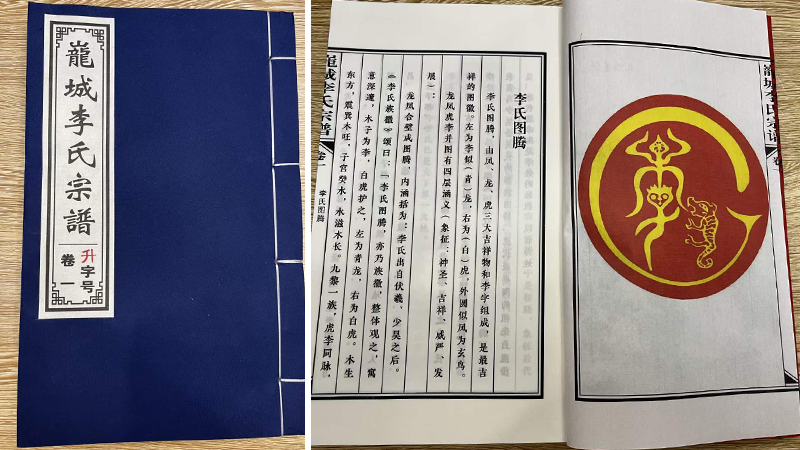 巃城李氏宗譜
升字号
卷一
李氏图腾
李氏图腾，由凤、龙、虎三大吉祥物和李字组成，是最吉
祥的图徽。左为李似（青）龙，右为（白）虎，外圆似凤为玄鸟。
龙凤虎李并图有四层涵义（象征、神圣、吉祥、威严、发
展）：
龙凤合壁成图腾，内涵括为：李氏出自伏羲、少昊之后。
《李氏族徽》颂曰：“李氏图腾，亦乃族徽，整体观之，寓
意深邃，木子为李，白虎护之，左为青龙，右为白虎。木生
东方，震巽木旺，子宫癸水，水滋木长。九黎一族，虎李同脉，
巃城李氏宗普
卷一
李氏图腾
巃城李氏宗
卷